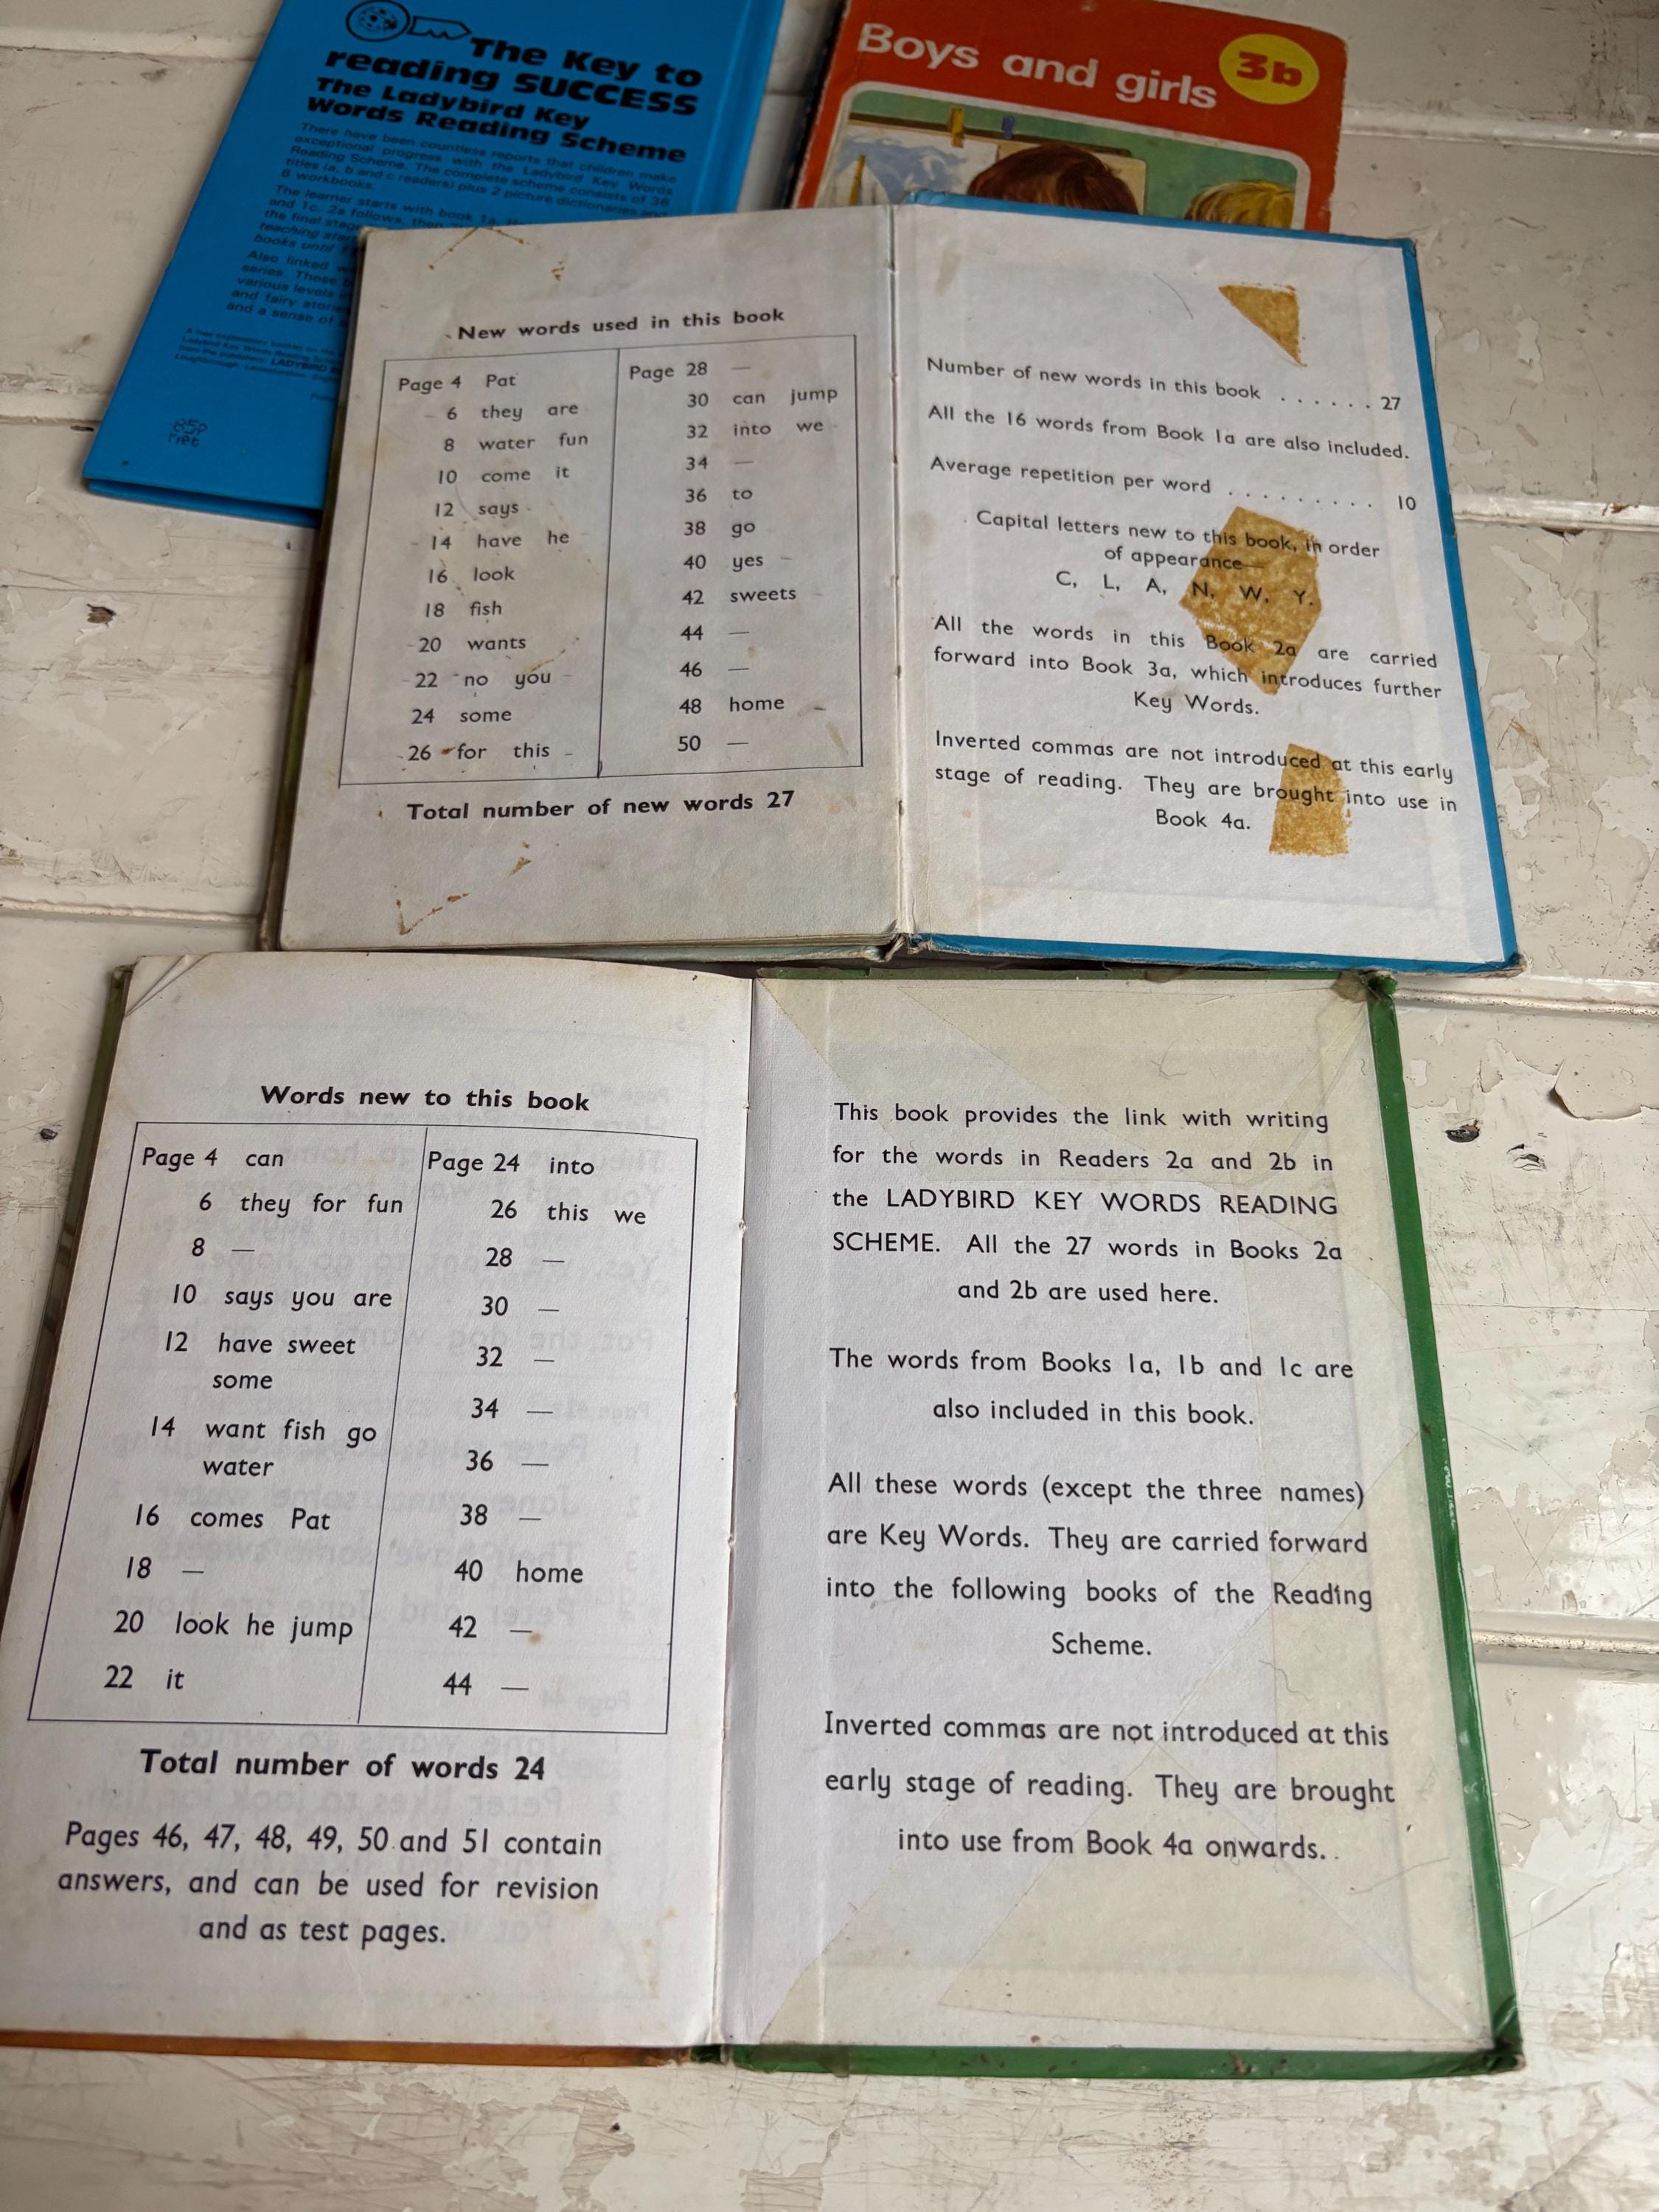 The Key to
reading SUCCESS
The Ladybird Key
Words Reading Scheme
There have been countless reports that children make
exceptional progress with the Ladybird Key Words
Reading Scheme. The complete scheme consists of 36
titles (a, b and c readers) plus 2 picture dictionaries and
6 workbooks.
The learner starts with book 1a.
and 1c. 2a follows, then
the final stage
teaching
books until
Also linked
series. These
various levels
and fairy stories
and a sense of
Boys and girls
3b
New words used in this book
Page 4 Pat
6 they are
8 water fun
10 come it
12 says
14 have he
16 look
18 fish
20 wants
22 no you
24 some
26 for this
Page 28 —
30 can jump
32 into we
34 —
36 to
38 go
40 yes
42 sweets
44 —
46 —
48 home
50 —
Total number of new words 27
Number of new words in this book . . . . . . 27
All the 16 words from Book 1a are also included.
Average repetition per word . . . . . . . . . 10
Capital letters new to this book, in order
of appearance—
C, L, A, N, W, Y.
All the words in this Book 2a are carried
forward into Book 3a, which introduces further
Key Words.
Inverted commas are not introduced at this early
stage of reading. They are brought into use in
Book 4a.
Words new to this book
Page 4 can
6 they for fun
8 —
10 says you are
12 have sweet
some
14 want fish go
water
16 comes Pat
18 —
20 look he jump
22 it
Page 24 into
26 this we
28 —
30 —
32 —
34 —
36 —
38 —
40 home
42 —
44 —
Total number of words 24
Pages 46, 47, 48, 49, 50 and 51 contain
answers, and can be used for revision
and as test pages.
This book provides the link with writing
for the words in Readers 2a and 2b in
the LADYBIRD KEY WORDS READING
SCHEME. All the 27 words in Books 2a
and 2b are used here.
The words from Books 1a, 1b and 1c are
also included in this book.
All these words (except the three names)
are Key Words. They are carried forward
into the following books of the Reading
Scheme.
Inverted commas are not introduced at this
early stage of reading. They are brought
into use from Book 4a onwards.